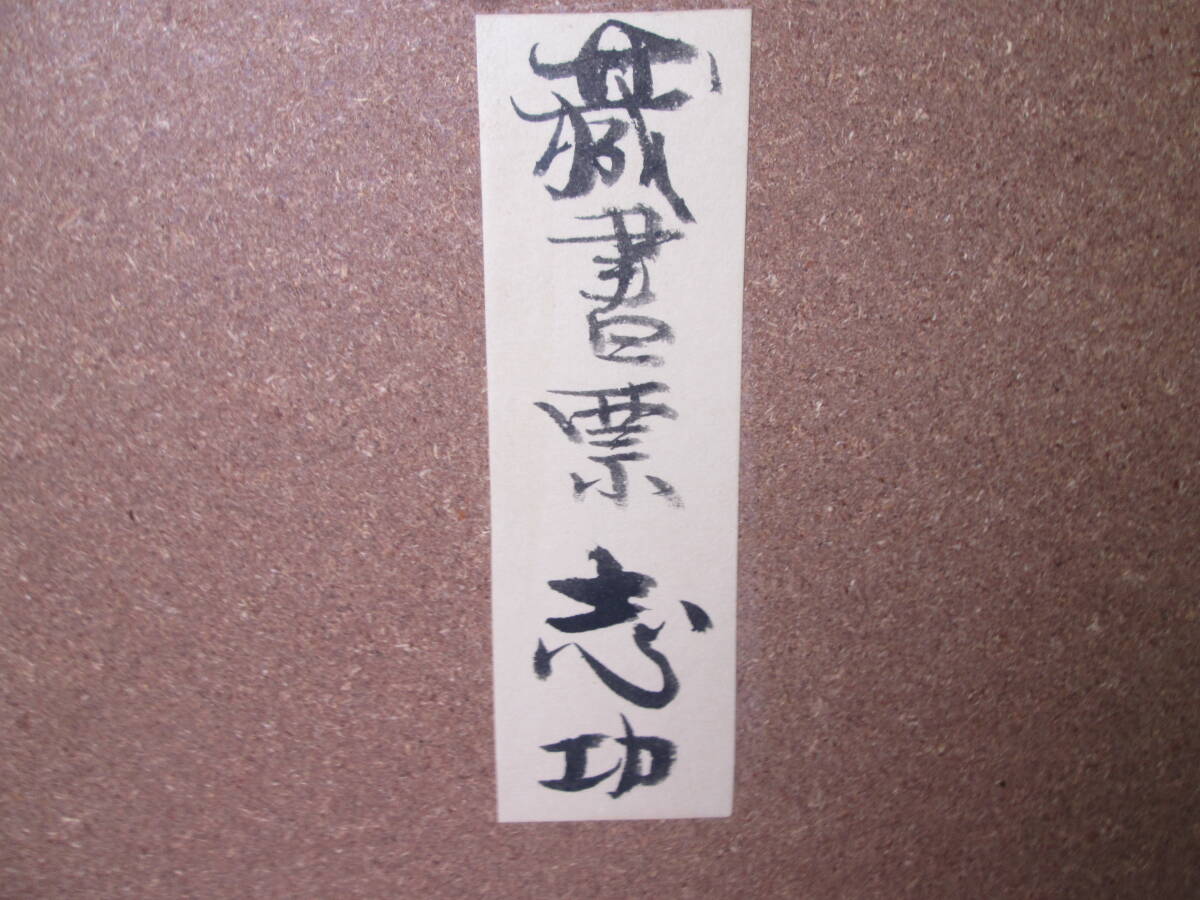 蔵書票 志功